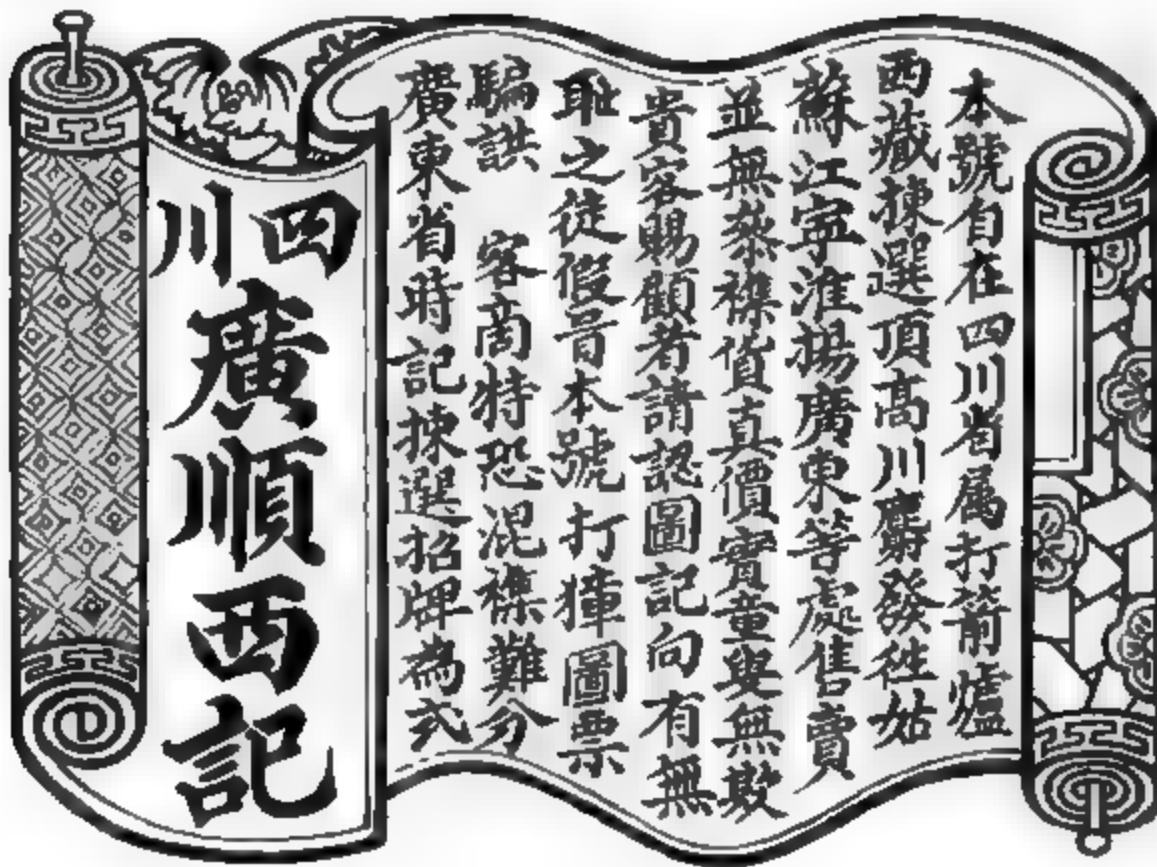 本號自在四川省属打箭爐
西藏揀選頂高川麝發往姑
蘇江寧淮揚廣東等處售賣
並無襍貨真價實童叟無欺
貴客賜顧者請認圖記向有無
耻之徒假冒本號打圖票
騙誆 客商特恐混襍難分
廣東省時記揀選招牌為式
四川
廣順西記